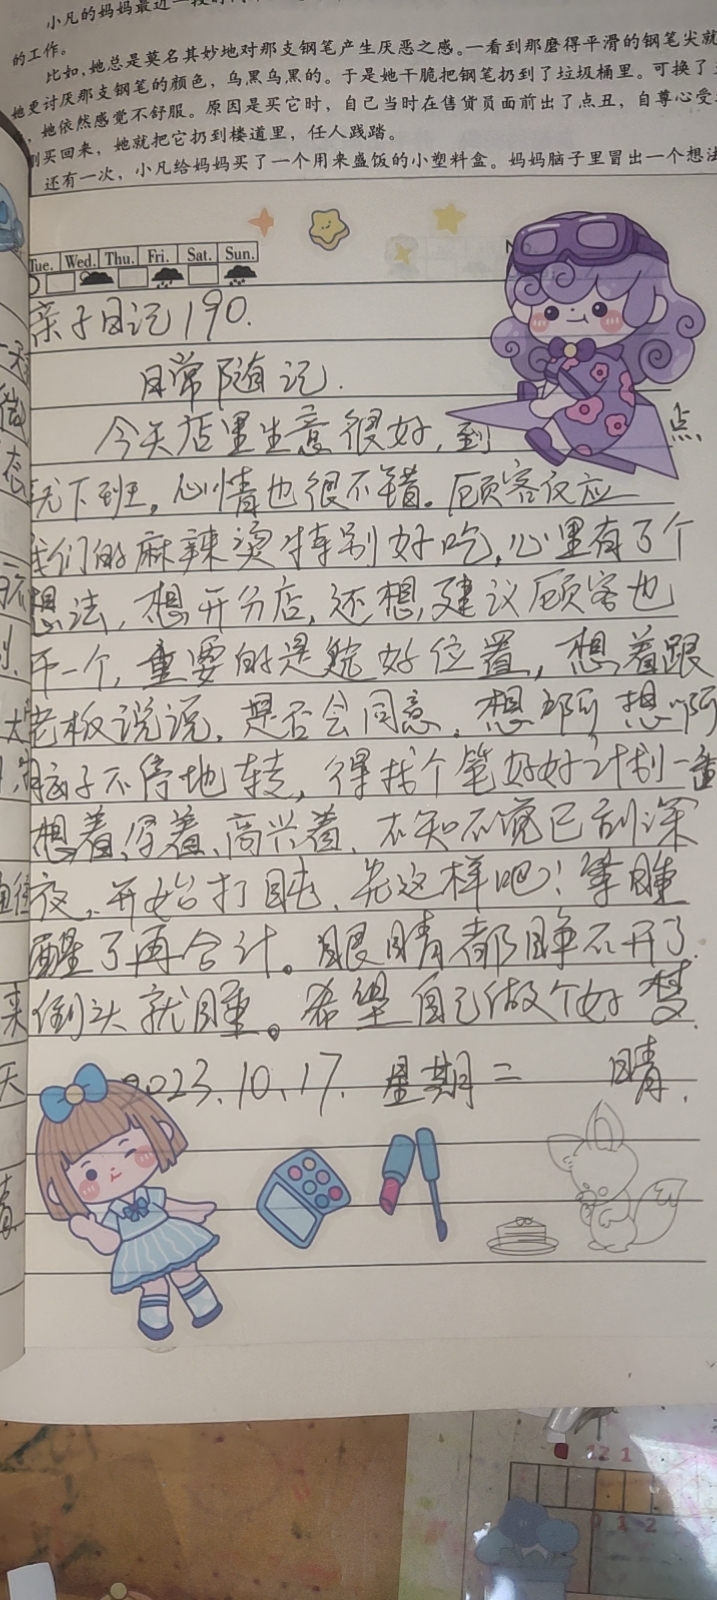 小凡的妈妈最近一段时间
的工作。
比如，她总是莫名其妙地对那支钢笔产生厌恶之感。一看到那磨得平滑的钢笔尖就
她更讨厌那支钢笔的颜色，乌黑乌黑的。于是她干脆把钢笔扔到了垃圾桶里。可换了
，她依然感觉不舒服。原因是买它时，自己当时在售货员面前出了点丑，自尊心受
刚买回来，她就把它扔到楼道里，任人践踏。
还有一次，小凡给妈妈买了一个用来盛饭的小塑料盒。妈妈脑子里冒出一个想法
Tue. Wed. Thu. Fri. Sat. Sun.
亲子日记190.
日常随记.
今天店里生意很好,到 点
就下班。心情也很不错。顾客反应
我们的麻辣烫特别好吃,心里有了个
想法,想开分店,还想建议顾客也
干一个,重要的是选好位置,想着跟
老板说说,是否会同意,想啊想啊
脑子不停地转,得找个笔好好计划一番
想着、写着、高兴着,不知不觉已到深
夜,开始打盹,先这样吧!等睡
醒了再合计。眼睛都睁不开了.
倒头就睡。希望自己做个好梦.
2023.10.17. 星期二 晴.
12 1
0 1 2